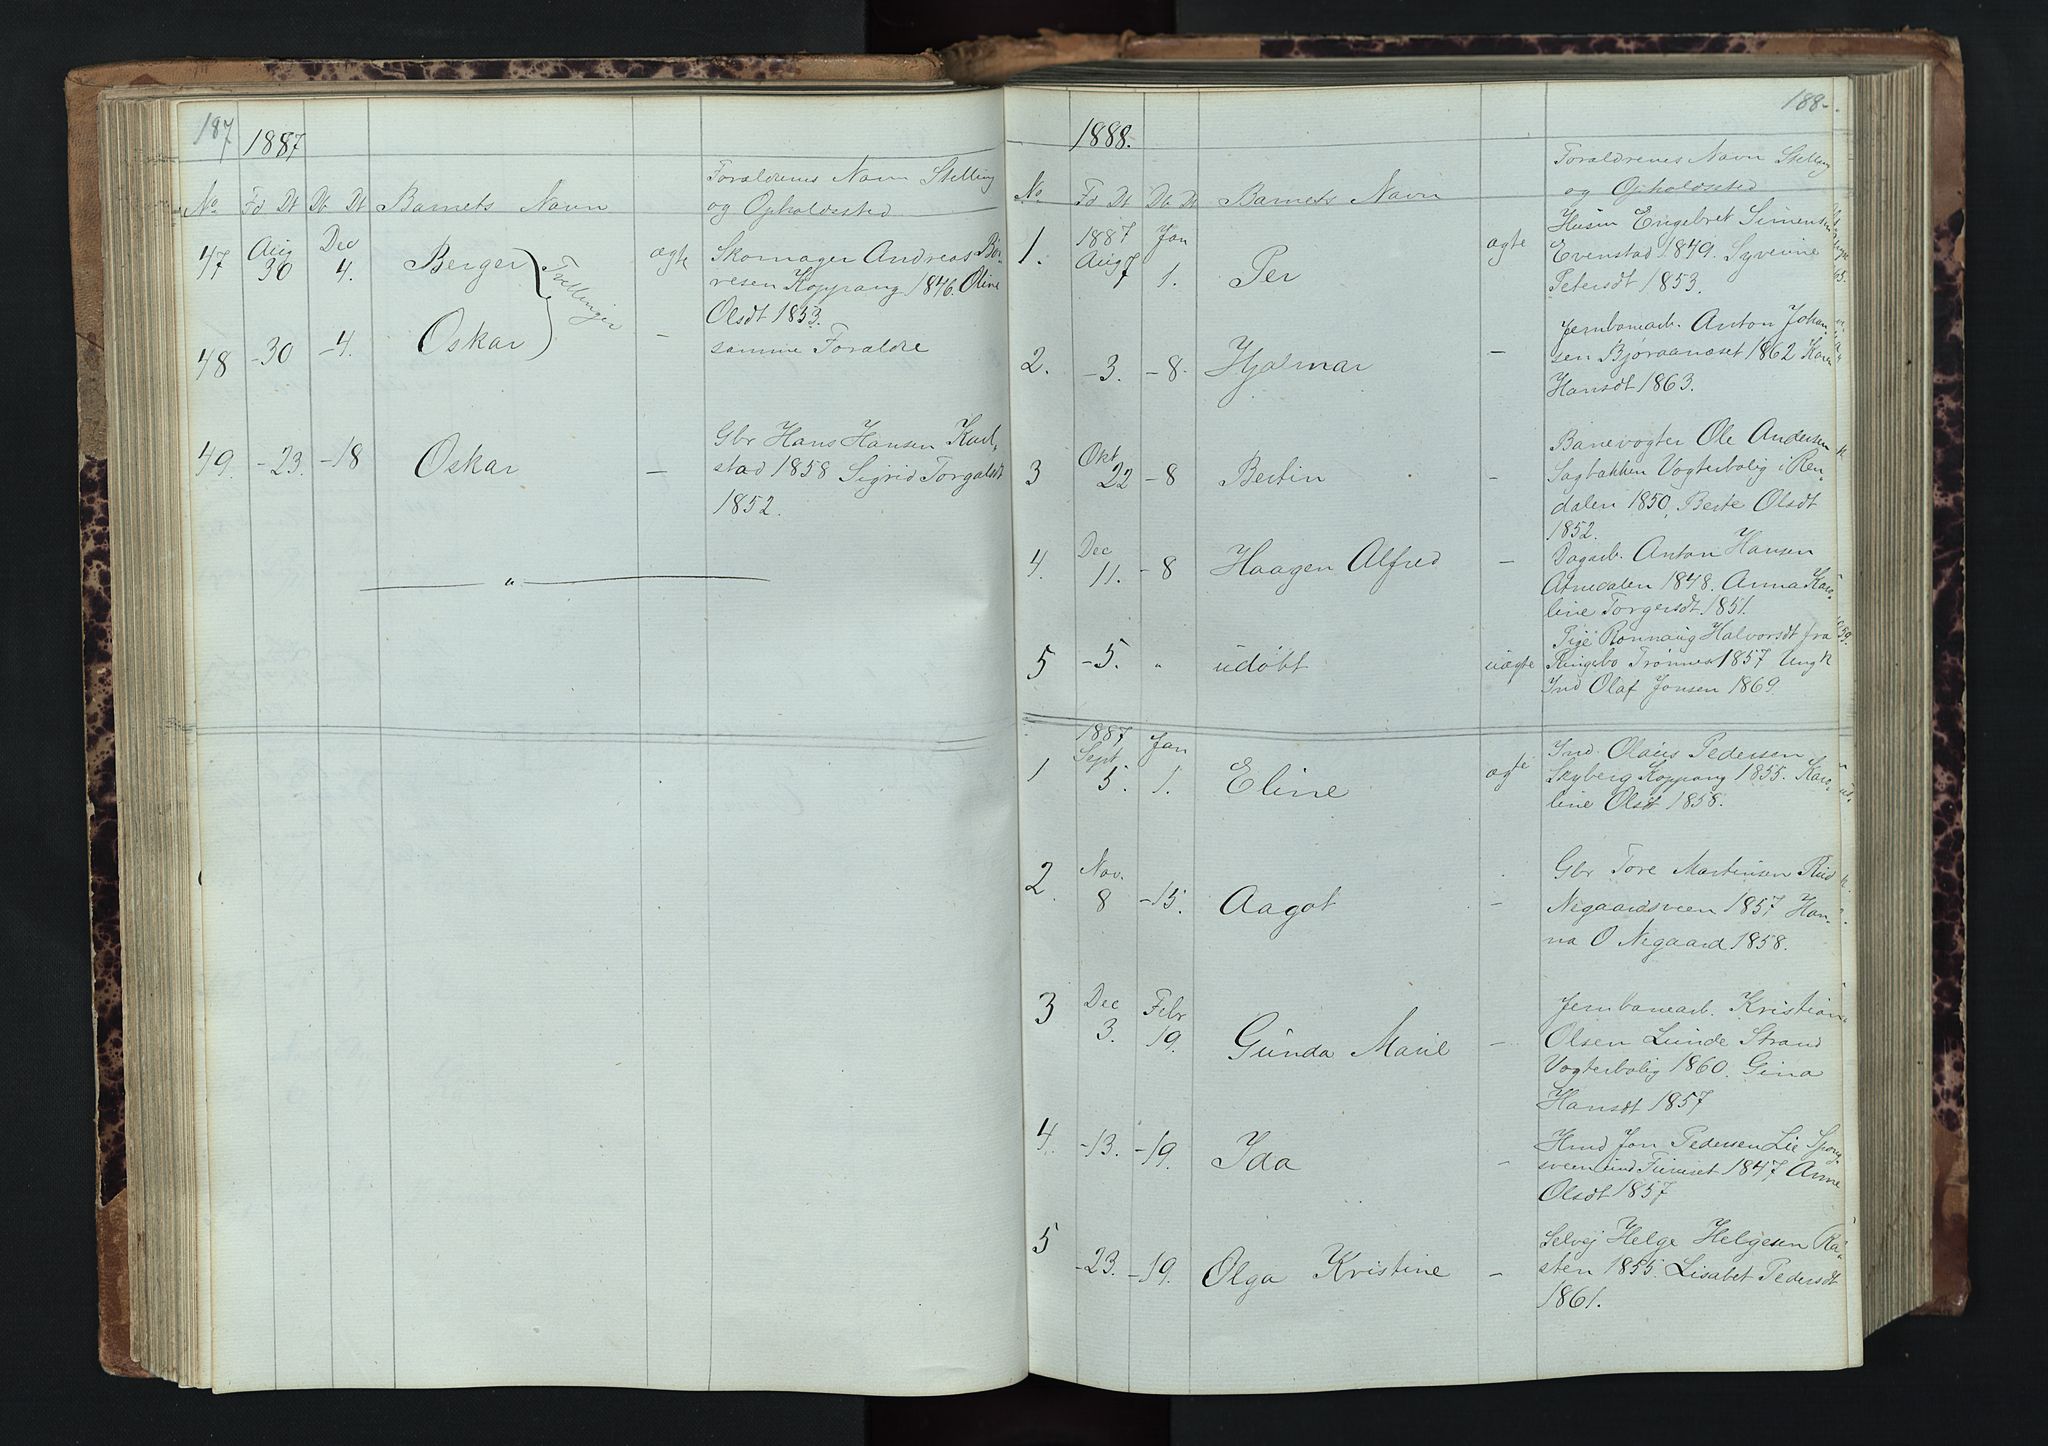 187
1887
No Fd Dt Db Dt Barnets Navn
Forældrenes Navn Stelling
og Opholdssted
47 Aug 30 Dec 4. Berger ægte Skomager Andreas Bør-
resen Koppang 1846. Oline
Olsdt 1853.
Tvillinger
48 -30 -4. Oskar - samme Forældre
49. -23. -18 Oskar - Gbr Hans Hansen Karl-
stad 1858 Sigrid Torgalsdt
1852.
188.
1888.
No Fd Dt Db Dt Barnets Navn
Forældrenes Navn Stelling
og Opholdssted
1. 1887 Aug 7 Jan 1. Per ægte Husm Engebret Simensen
Evenstad 1849. Syverine
Petersdt 1853.
2. -3. -8. Hjalmar - Jernbanearb. Anton Johan-
sen Bjøraanæset 1862 Karen
Hansdt 1863.
3 Okt 22 -8 Bertin - Banevogter Ole Andersen
Sagbakken Vogterbolig i Ren-
dalen 1850. Berte Olsdt
1852.
4. Dec 11. -8 Haagen Alfred - Dagarb. Anton Hansen
Atnedalen 1848. Anna Karo-
line Torgersdt. 1851.
5 -5. " udøbt uægte Pige Rønnaug Halvorsdt fra
Ringebo Trønnes 1857 Ungk
Ind Olaf Jonsen 1869.
1 1887 Sept. 5. Jan 1. Eline ægte Ind. Olaus Pedersen
Skyberg Koppang 1855. Karo-
line Olsdt 1858.
2. Nov. 8 -15. Aagot - Gbr Tore Martinsen Rud
Negaardsveen 1857 Han-
na O Negaard 1858.
3 Dec 3. Febr 19. Gunda Marie - Jernbanearb. Kristian
Olsen Lunde Strand
Vogterbolig 1860. Gina
Hansdt 1857
4. -13. -19. Ida - Hmd Jon Pedersen Lie
1847 Anne
Olsdt 1857
5 -23. -19. Olga Kristine - Selvej Helge Helgesen Ra-
sten 1855. Lisabet Pedersdt
1861.